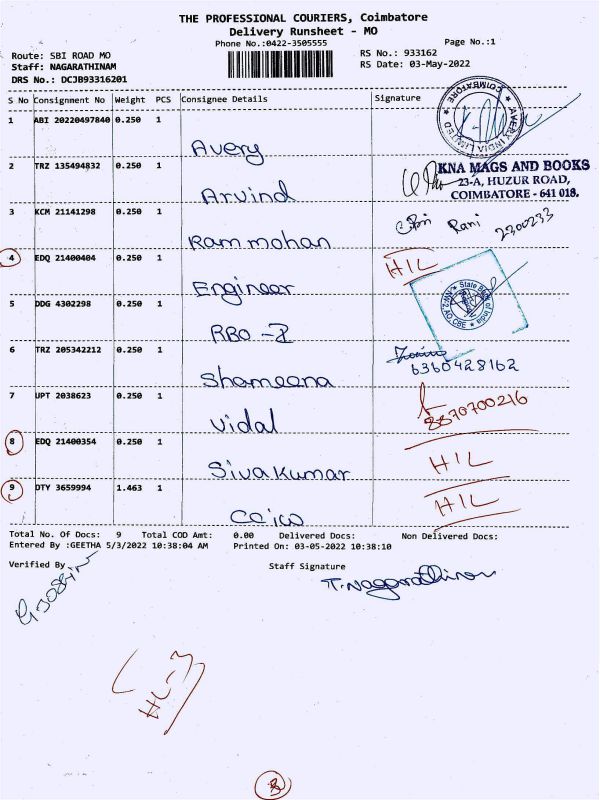 THE PROFESSIONAL COURIERS, Coimbatore
Delivery Runsheet - MO
Phone No.:0422-3505555 Page No.:1
Route: SBI ROAD MO RS No.: 933162
Staff: NAGARATHINAM RS Date: 03-May-2022
DRS No.: DCJB93316201
S No Consignment No Weight PCS Consignee Details Signature
1 ABI 20220497840 0.250 1
COIMBATORE AVERY INDIA LIMITED
Avery
2 TRZ 135494832 0.250 1 KNA MAGS AND BOOKS
23-A, HUZUR ROAD,
COIMBATORE - 641 018.
Arvind
3 KCM 21141298 0.250 1
Rani 2300233
Ram mohan
4 EDQ 21400404 0.250 1 HIL
Engineer
State Bank of India
5 DDG 4302298 0.250 1
RBO -I
6 TRZ 205342212 0.250 1
6360428162
Shameena
7 UPT 2038623 0.250 1
8870700216
Vidal
8 EDQ 21400354 0.250 1 HIL
Sivakumar
9 DTY 3659994 1.463 1 HIL
Total No. Of Docs: 9 Total COD Amt: 0.00 Delivered Docs: Non Delivered Docs:
Entered By :GEETHA 5/3/2022 10:38:04 AM Printed On: 03-05-2022 10:38:10
Verified By Staff Signature
T. Nagarathinam
HL-3